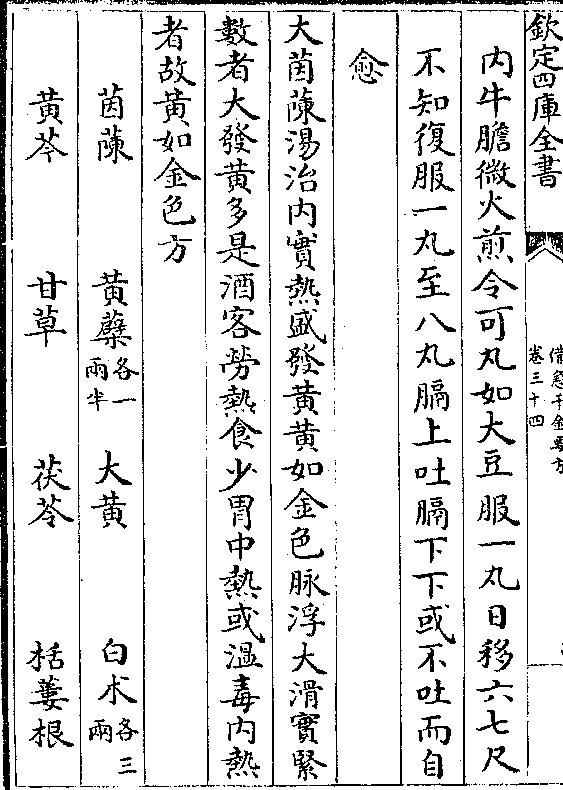 欽定四庫全書
卷三十四
內牛膽微火煎令可丸如大豆服一丸日移六七尺
不知復服一丸至八丸膈上吐膈下下或不吐而自
愈
大茵蔯湯治內實熱盛發黃黃如金色脉浮大滑實緊
數者大發黃多是酒客勞熱食少胃中熱或温毒內熱
者故黃如金色方
茵蔯 黃蘗各一兩半 大黃 白术各三兩
黃芩 甘草 茯苓 栝蔞根